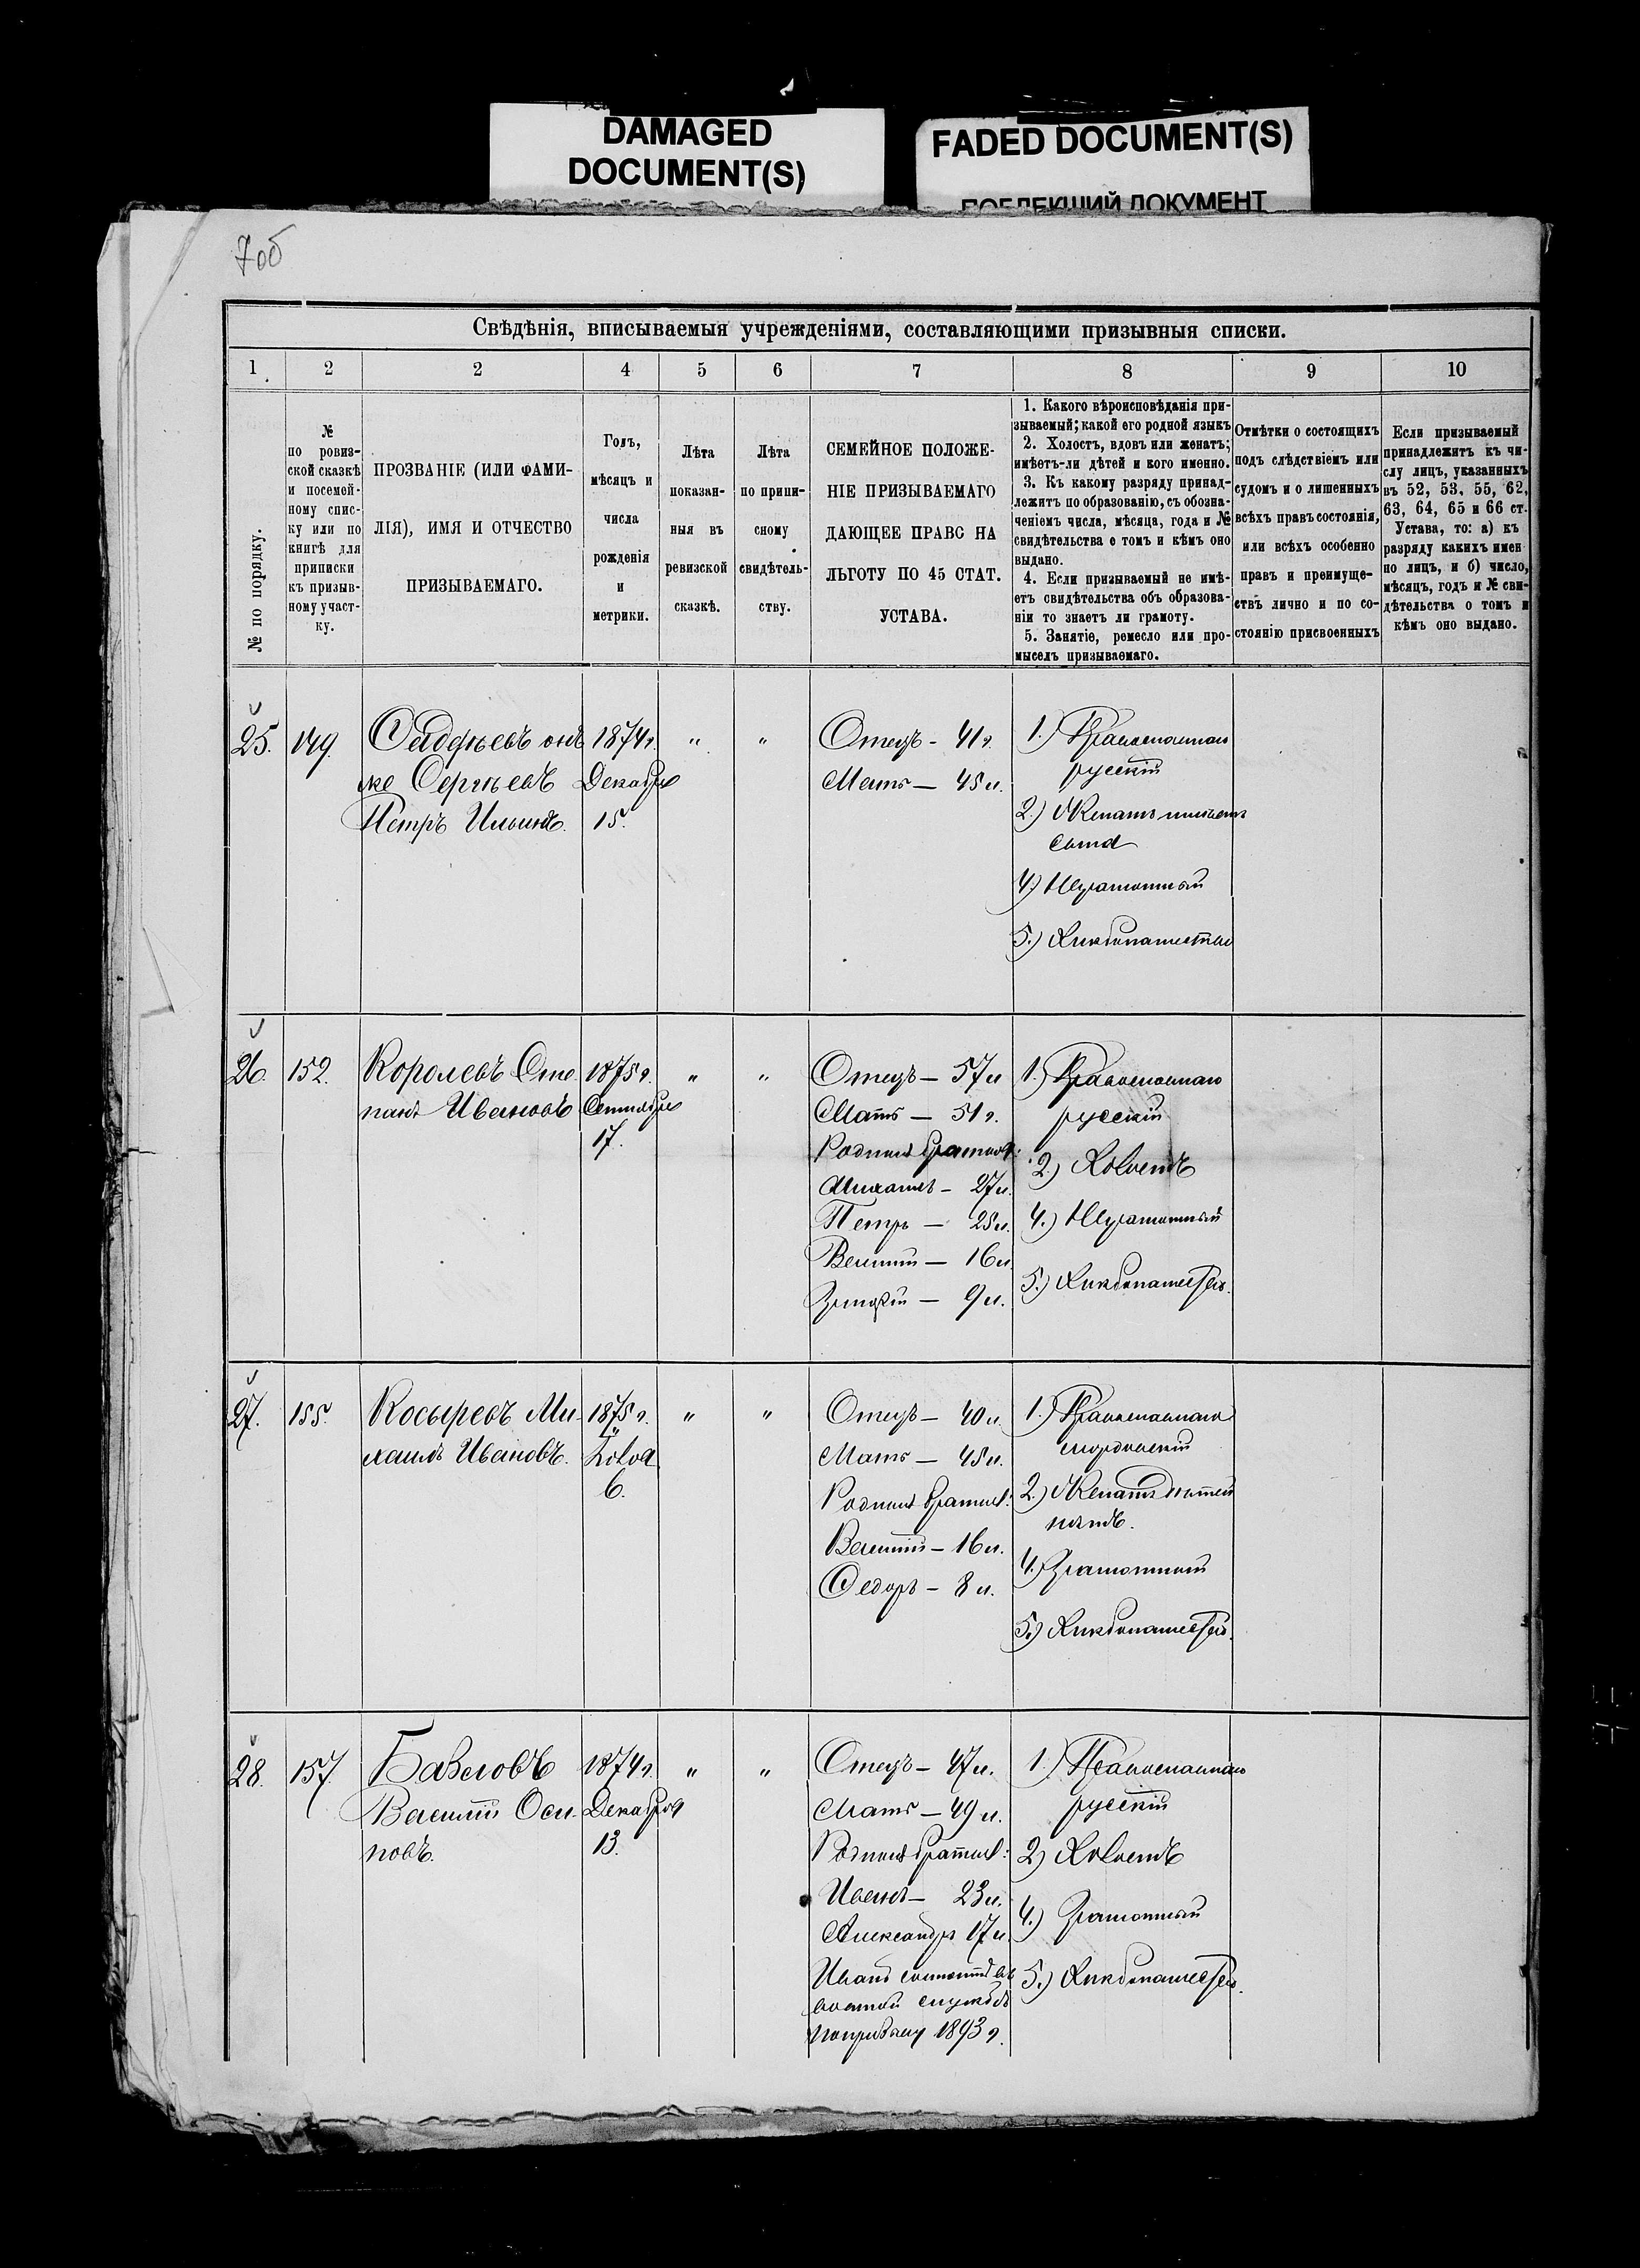 DAMAGED
DOCUMENT(S)
FADED DOCUMENT(S)
ПОБЛЕКШИЙ ДОКУМЕНТ
7об
Свѣдѣнія, вписываемыя учрежденіями, составляющими призывныя списки.
1 2 2 4 5 6 7 8 9 10
№ по порядку.
№
по ровиз-
ской сказкѣ
и посемей-
ному спис-
ку или по
книгѣ для
приписки
къ призыв-
ному участ-
ку.
ПРОЗВАНІЕ (ИЛИ ФАМИ-
ЛІЯ), ИМЯ И ОТЧЕСТВО
ПРИЗЫВАЕМАГО.
Годъ,
мѣсяцъ и
числа
рожденія
и
метрики.
Лѣта
показан-
ныя въ
ревизской
сказкѣ.
Лѣта
по припи-
сному
свидѣтель-
ству.
СЕМЕЙНОЕ ПОЛОЖЕ-
НІЕ ПРИЗЫВАЕМАГО
ДАЮЩЕЕ ПРАВО НА
ЛЬГОТУ ПО 45 СТАТ.
УСТАВА.
1. Какого вѣроисповѣданія при-
зываемый; какой его родной языкъ
2. Холостъ, вдовъ или женатъ;
имѣетъ-ли дѣтей и кого именно.
3. Къ какому разряду принад-
лежитъ по образованію, съ обозна-
ченіемъ числа, мѣсяца, года и №
свидѣтельства о томъ и кѣмъ оно
выдано.
4. Если призываемый не имѣ-
етъ свидѣтельства объ образова-
ніи то знаетъ ли грамоту.
5. Занятіе, ремесло или про-
мыселъ призываемаго.
Отмѣтки о состоящихъ
подъ слѣдствіемъ или
судомъ и о лишенныхъ
всѣхъ правъ состоянія,
или всѣхъ особенно
правъ и преимуще-
ствъ лично и по со-
стоянію присвоенныхъ
Если призываемый
принадлежитъ къ чи-
слу лицъ, указанныхъ
въ 52, 53, 55, 62,
63, 64, 65 и 66 ст.
Устава, то: а) къ
разряду какихъ имен
но лицъ, и б) число,
мѣсяцъ, годъ и № сви-
дѣтельства о томъ и
кѣмъ оно выдано.
25. 149.
онъ
же Сергѣевъ
Петръ Ильинъ.
1874 г.
Декабря
15.
" "
Отецъ - 41 г.
Мать — 45 л.
1.) Православнаго
русскій
2.) Женатъ имѣетъ
сына
4.) Неграмотный
5.) Хлѣбопашество
26. 152.
Королевъ Сте-
панъ Ивановъ
1875 г.
Сентября
17.
" "
Отецъ — 57 л
Мать — 51 г.
Родныя братья:
Михаилъ — 27 л.
Петръ — 25 л.
Василій — 16 л.
9 л.
1.) Православнаго
русскій
2.) Холостъ
4.) Неграмотный
5.) Хлѣбопашество.
27. 155.
Косыревъ Ми-
хаилъ Ивановъ.
1875 г.
6.
" "
Отецъ — 40 л.
Мать — 45 л.
Родныя братья:
Василій — 16 л.
Федоръ — 8 л.
1.) Православнаго
мордовскій
2.) Женатъ дѣтей
нѣтъ.
4.) Грамотный
5.) Хлѣбопашество.
28. 157.
Бавловъ
Василій Оси-
повъ.
1874 г.
Декабря
13.
" "
Отецъ — 47 л.
Мать — 49 л.
Родныя братья:
Иванъ — 23 л.
Александръ 17 л.
Иванъ состоитъ въ
военной службѣ
по призыву 1893 г.
1.) Православнаго
русскій
2) Холостъ
4.) Грамотный
5.) Хлѣбопашество.